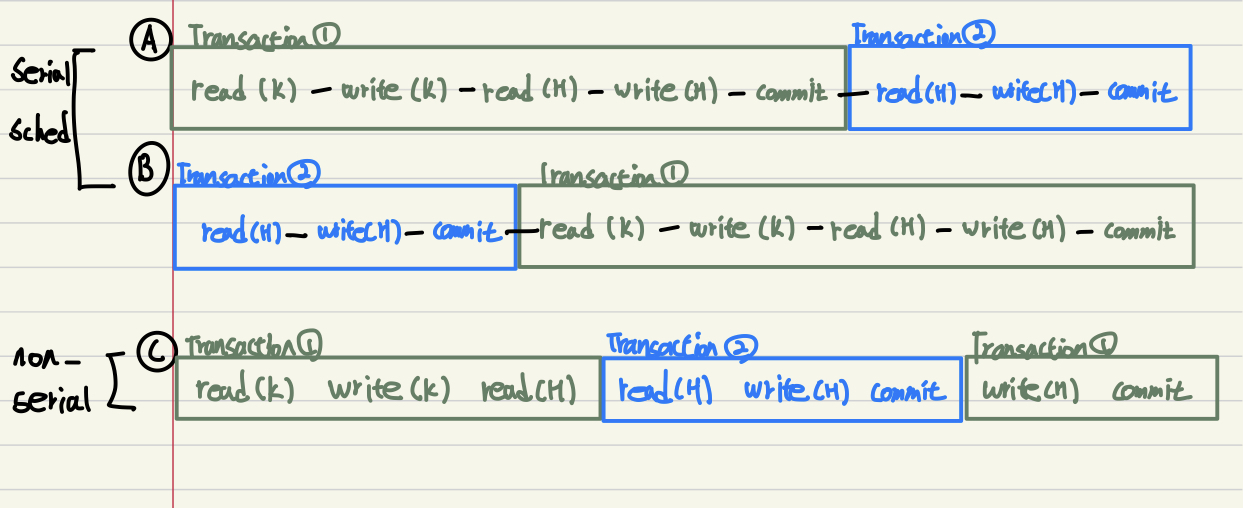 Ⓐ Transaction ① Transaction ②
serial sched
read (K) – write (K) – read (H) – write (H) – commit – read(H) – write(H) – commit
Ⓑ Transaction ② Transaction ①
read(H) – write(H) – commit – read (K) – write (K) – read (H) – write (H) – commit
Ⓒ Transaction ① Transaction ② Transaction ①
non-serial
read(K) write(K) read(H) read(H) write(H) commit write(H) commit